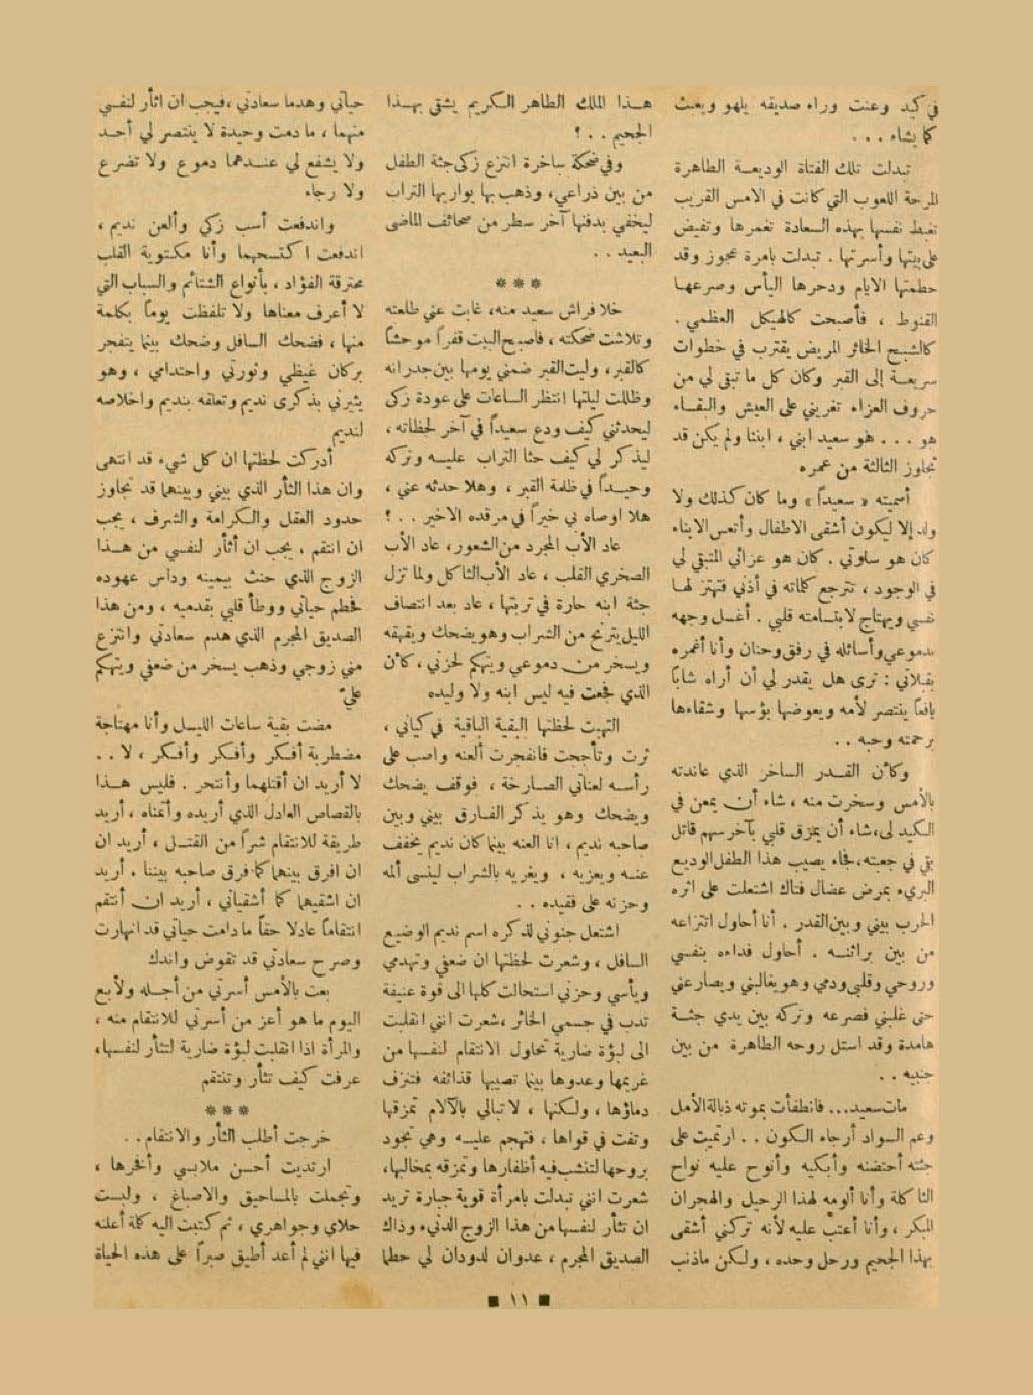 في كبد وعنت وراء صديقه يلهو ويعبث
كما يشاء . . .
تبدلت تلك الفتاة الوديعة الطاهرة
المرحة اللعوب التي كانت في الامس القريب
تغبط نفسها بهذه السعادة تغمرها وتفيض
على بيتها وأسرتها . تبدلت بامرة عجوز وقد
حطمتها الايام ودحرها اليأس وصرعها
القنوط ، فأصبحت كالهيكل العظمي .
كالشبح الخائر المريض يقترب في خطوات
سريعة إلى القبر وكان كل ما تبقى لي من
حروف العزاء تغريني على العيش والبقاء
هو . . . هو سعيد ابني ، ابننا ولم يكن قد
تجاوز الثالثة من عمره
أسميته « سعيداً » وما كان كذلك ولا
ولد إلا ليكون أشقى الاطفال وأتعس الابناء
كان هو سلوتي . كان هو عزائي المتبقي لي
في الوجود ، تترجع كلماته في أذني فتهتز لها
نفسي ويهتاج لابتسامته قلبي . أغسل وجهه
بدموعي وأسائله في رفق وحنان وأنا أغمره
بقبلاتي : ترى هل يقدر لي أن أراه شاباً
يافعاً ينتصر لأمه ويعوضها بؤسها وشقاءها
برحمته وحبه . .
وكأن القدر الساخر الذي عاندته
بالأمس وسخرت منه ، شاء أن يمعن في
الكيد لي، شاء أن يمزق قلبي بآخر سهم قاتل
بقي في جعبته، فجاء يصيب هذا الطفل الوديع
البريء بمرض عضال فتاك اشتعلت على اثره
الحرب بيني وبين القدر . أنا أحاول انتزاعه
من بين براثنه . أحاول فداءه بنفسي
وروحي وقلبي ودمي وهو يغالبني ويصارعني
حتى غلبني فصرعه وتركه بين يدي جثة
هامدة وقد استل روحه الطاهرة من بين
جنبيه . .
مات سعيد... فانطفأت بموته ذبالة الأمل
وعم السواد أرجاء الكون . . ارتميت على
جثته أحتضنه وأبكيه وأنوح عليه نواح
الثاكلة وأنا ألومه لهذا الرحيل والهجران
المبكر ، وأنا أعتب عليه لأنه تركني أشقى
بهذا الجحيم ورحل وحده ، ولكن ماذنب
هذا الملك الطاهر الكريم يشقى بهذا
الجحيم . . ؟
وفي ضحكة ساخرة انتزع زكي جثة الطفل
من بين ذراعي، وذهب بها يواريها التراب
ليخفي بدفنها آخر سطر من صحائف الماضي
البعيد . .
* * *
خلا فراش سعيد منه، غابت عني طلعته
وتلاشت ضحكته ، فاصبح البيت قفراً موحشاً
كالقبر، وليت القبر ضمني يومها بين جدرانه
وظللت ليلتها انتظر الساعات على عودة زكى
ليحدثني كيف ودع سعيداً في آخر لحظاته ،
ليذكر لي كيف حثا التراب عليه وتركه
وحيداً في ظلمة القبر ، وهلا حدثه عني ،
هلا اوصاه بي خيراً في مرقده الاخير . . ؟
عاد الأب المجرد من الشعور، عاد الأب
الصخري القلب ، عاد الأب الثاكل ولما تزل
جثة ابنه حارة في تربتها ، عاد بعد انتصاف
الليل يترنح من الشراب وهو يضحك ويقهقه
ويسخر من دموعي ويتهكم لحزني ، كأن
الذي فجعت فيه ليس ابنه ولا وليده
التهبت لحظتها البقية الباقية في كياني ،
ثرت وتأججت فانفجرت ألعنه واصب على
رأسه لعناتي الصارخة ، فوقف يضحك
ويضحك وهو يذكر الفارق بيني وبين
صاحبه نديم ، انا العنه بينما كان نديم يخفف
عنه ويعزيه ، ويغريه بالشراب لينسى ألمه
وحزنه على فقيده . .
اشتعل جنوني لذكره اسم نديم الوضيع
السافل ، وشعرت لحظتها ان ضعفي وتهدمي
ويأسي وحزني استحالت كلها الى قوة عنيفة
تدب في جسمي الخائر ، شعرت انني انقلبت
الى لبؤة ضارية تحاول الانتقام لنفسها من
غريمها وعدوها بينما تصيبها قذائفه فتنزف
دماؤها ، ولكنها ، لا تبالي بالآلام تمزقها
وتفت في قواها ، فتهجم عليه وهي تجود
بروحها لتنشب فيه أظفارها وتمزقه بمخالبها،
شعرت انني تبدلت بامرأة قوية جبارة تريد
ان تثأر لنفسها من هذا الزوج الدنيء وذاك
الصديق المجرم ، عدوان لدودان لي حطما
حياتي وهدما سعادتي ، فيجب ان اثأر لنفسي
منهما ، ما دمت وحيدة لا ينتصر لي أحد
ولا يشفع لي عندهما دموع ولا تضرع
ولا رجاء
واندفعت أسب زكي وألعن نديم ،
اندفعت اكتسحهما وأنا مكتوية القلب
محترقة الفؤاد ، بأنواع الشتائم والسباب التي
لا أعرف معناها ولا تلفظت يوماً بكلمة
منها ، فضحك السافل وضحك بينما ينفجر
بركان غيظي وثورتي واحتدامي ، وهو
يثيرني بذكرى نديم وتعلقه بنديم واخلاصه
لنديم
أدركت لحظتها ان كل شيء قد انتهى
وان هذا الثأر الذي بيني وبينهما قد تجاوز
حدود العقل والكرامة والشرف ، يجب
ان انتقم . يجب ان أثأر لنفسي من هذا
الزوج الذي حنث بيمينه وداس عهوده
فحطم حياتي ووطأ قلبي بقدميه ، ومن هذا
الصديق المجرم الذي هدم سعادتي وانتزع
مني زوجي وذهب يسخر من ضعفي ويتهكم
عليّ
مضت بقية ساعات الليل وأنا مهتاجة
مضطربة أفكر وأفكر وأفكر ، لا . .
لا أريد ان أقتلهما وأنتحر . فليس هذا
بالقصاص العادل الذي أريده وأتمناه ، أريد
طريقة للانتقام شراً من القتل ، أريد ان
ان افرق بينهما كما فرق صاحبه بيننا . أريد
ان اشقيهما كما أشقياني ، أريد ان أنتقم
انتقاماً عادلا حقاً ما دامت حياتي قد انهارت
وصرح سعادتي قد تقوض واندك
بعت بالأمس أسرتي من أجله ولأبع
اليوم ما هو أعز من أسرتي للانتقام منه ،
والمرأة اذا انقلبت لبؤة ضارية لتثأر لنفسها،
عرفت كيف تثأر وتنتقم
* * *
خرجت أطلب الثأر والانتقام . .
ارتديت أحسن ملابسي وأفخرها ،
وتجملت بالمساحيق والاصباغ ، ولبست
حلاي وجواهري ، ثم كتبت اليه كلمة أعلنه
فيها انني لم أعد أطيق صبراً على هذه الحياة
■ ١١ ■